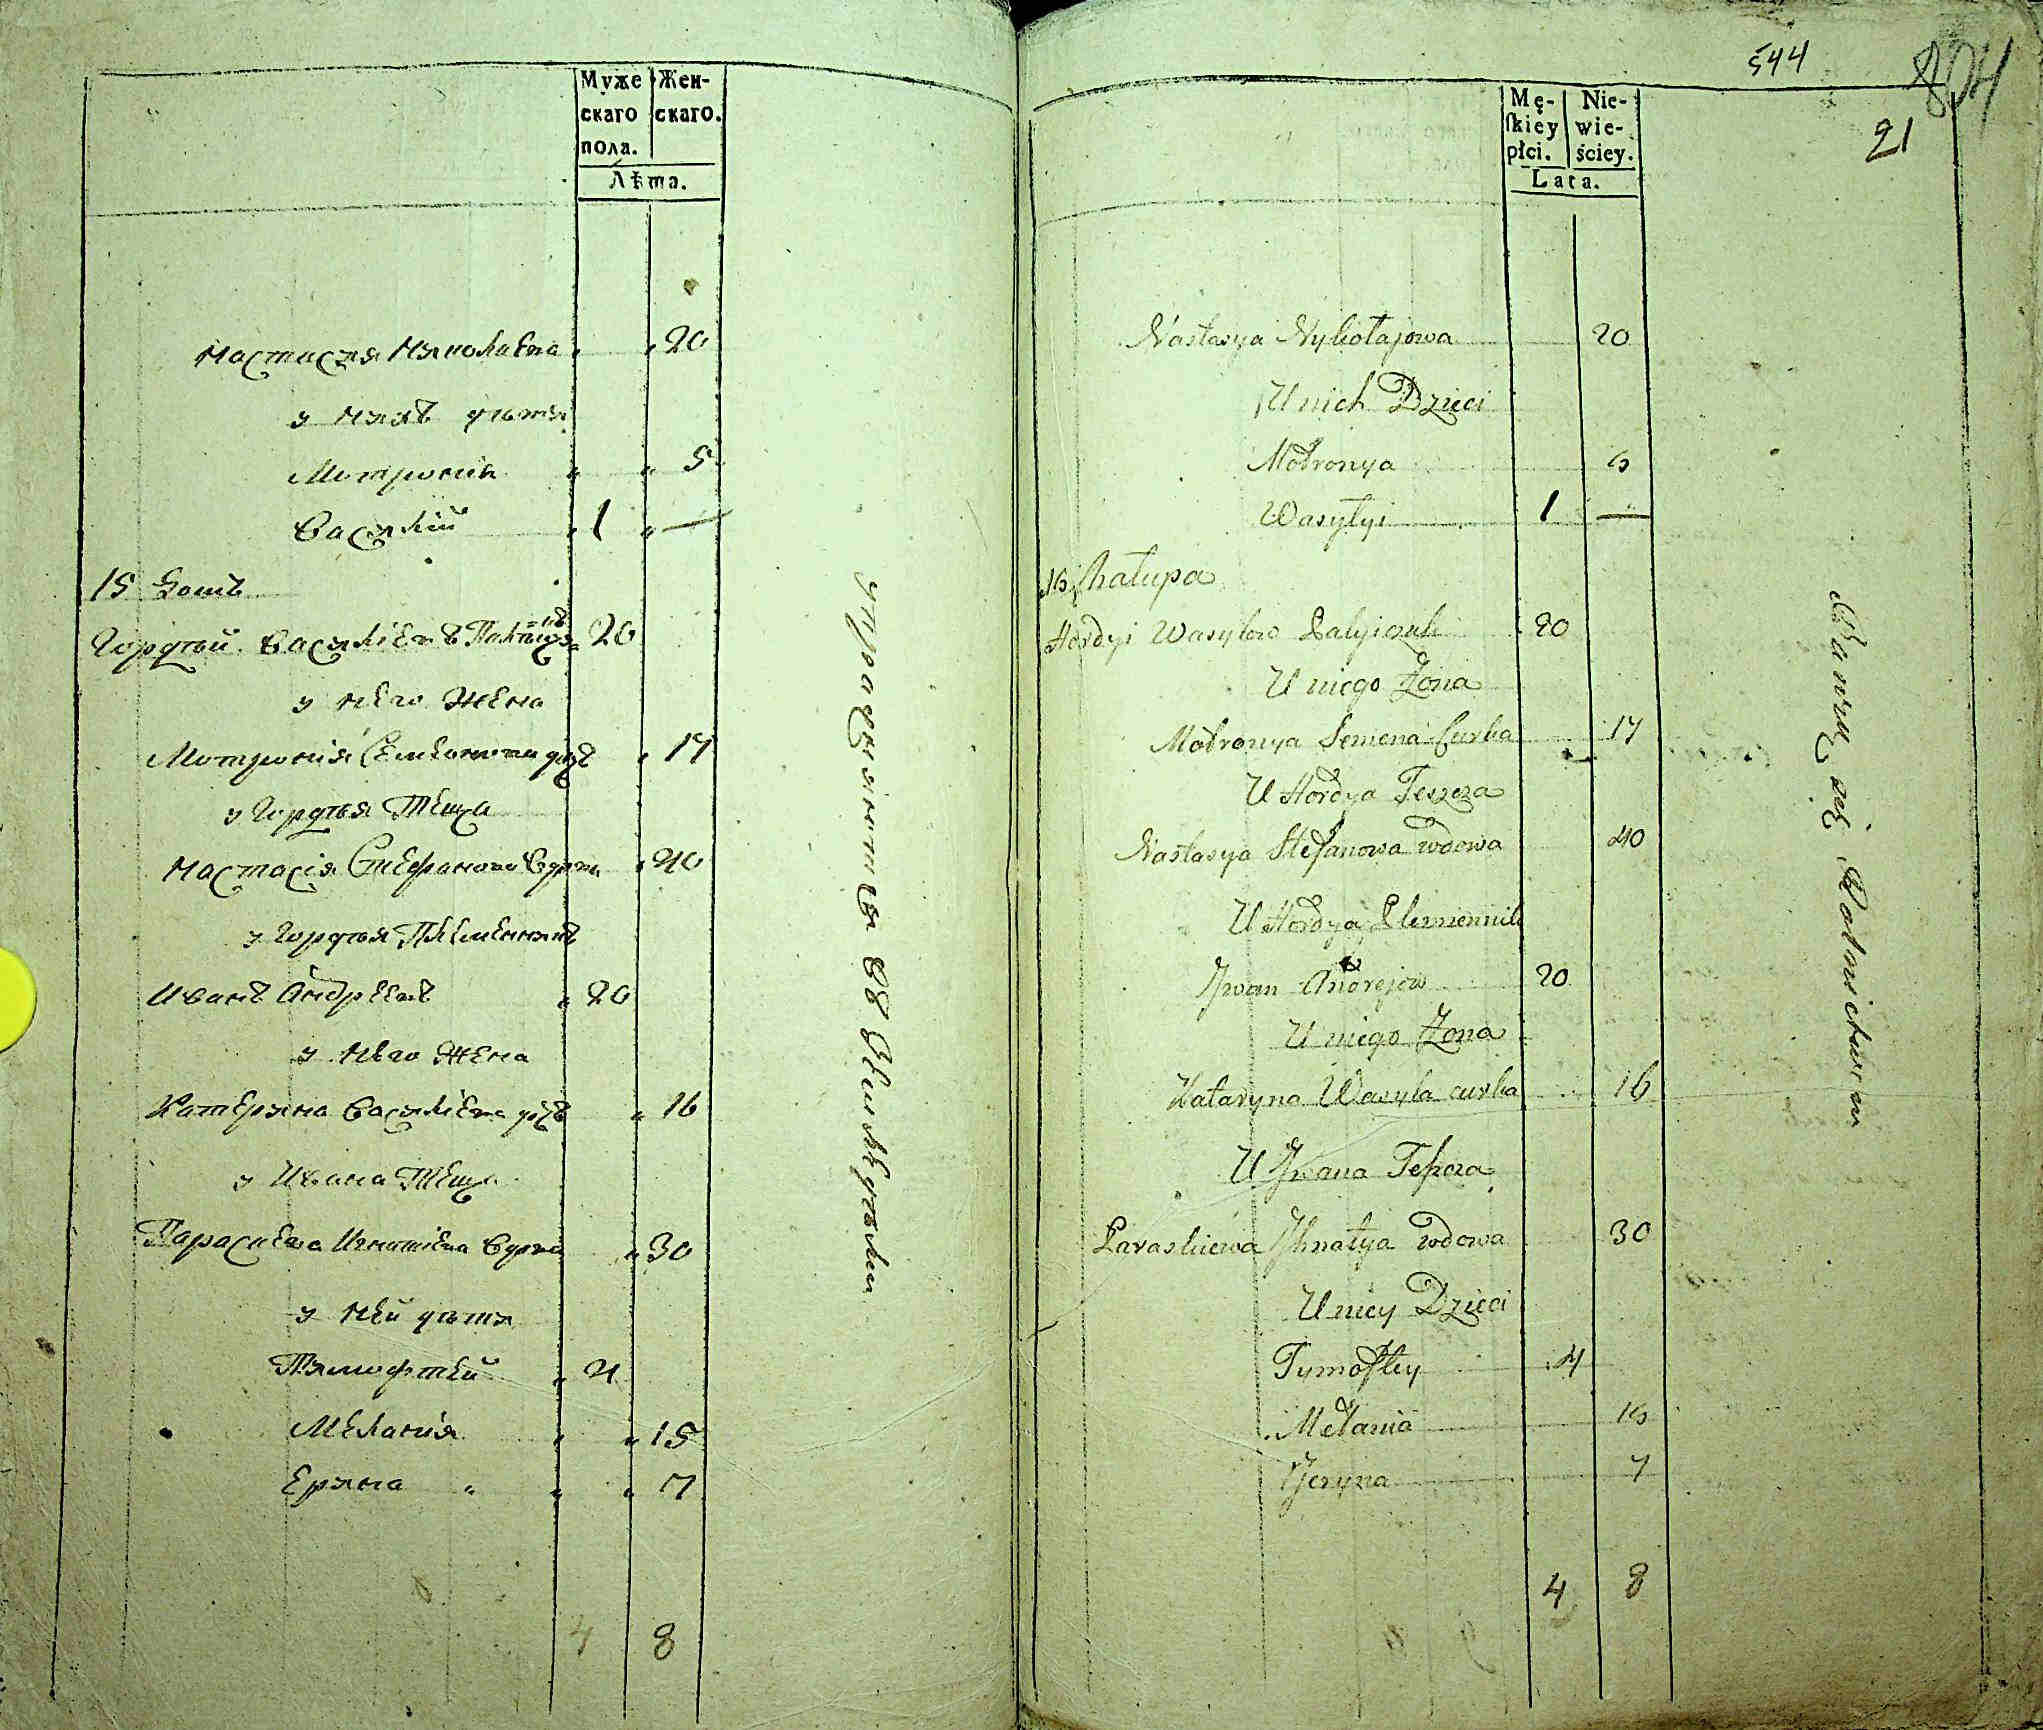 Муже
скаго
пола.
Жен-
скаго.
Лѣта.
Настасия Николаева 20
у нихъ дѣти
Мотрония 5
Василий 1 —
15 Хата
Гордѣй Василіевъ 20
у него Жена
Мотронія Семенова дочь 17
у Гордѣя Теща
Настасія Стефанова Вдова 40
у Гордѣя Племенникъ
Иванъ Андреевъ 20
у него Жена
Катерина Василіева дочь 16
у Ивана Теща
Параскева Игнатіева Вдова 30
у ней дѣти
Тимофтей 4
Меланія 15
Ерина 7
4 8
упражняются въ Земледѣліи
544
804
21
Mę-
ſkiey
płci.
Nie-
wie-
ściey.
Lata.
Nastasya Mykołajowa 20
U nich Dzieci
Motronya 5
Wasyłyi 1 —
15 Chałupa
Hordyi Wasylow 20
U niego Żona
Motronya Semena Curka 17
U Hordya Teszcza
Nastasya Stefanowa wdowa 40
U Hordya Plemiennik
Jwan Andrejow 20
U niego Żona
Kataryna Wasyla curka 16
U Jwana Teſzcza
Paraskiewa Jhnatya wdowa 30
U niey Dzieci
Tymoftey 4
Mełania 15
Jeryna 7
4 8
Bawią się Rolnictwem